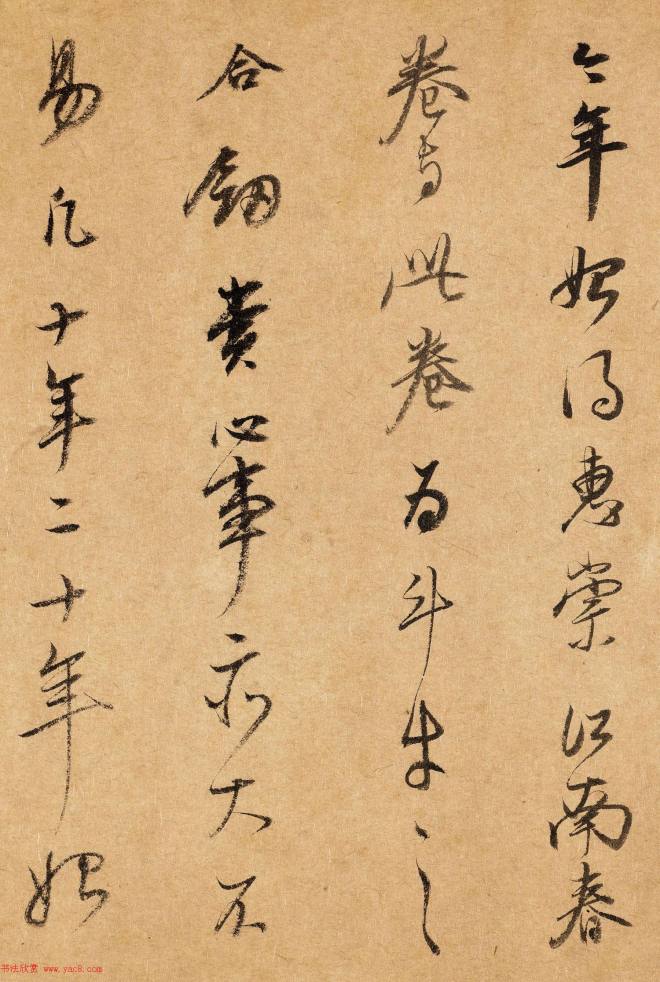 今年始得惠崇江南春
卷与此卷为斗牛之
合剑卖心事亦大不
易凡十年二十年始
书法欣赏 www.yac8.com